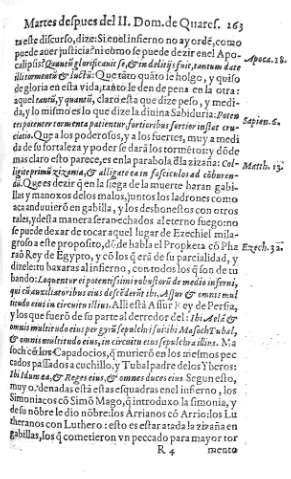 Martes despues del II. Dom. de Quares. 163
ta este discurso, dize: Si en el infierno no ay ordẽ, como
puede auer justicia? ni cómo se puede dezir en el Apo-
calipsis? Quantũ glorificauit se, & in delitijs fuit, tantum date
Apoca. 18.
illi tormentũ & luctũ: Que tãto quãto le holgo, y quiso
de gloria en esta vida, tanto le den de pena en la otra: a
aquel tantũ, y quantũ, claro està que dize peso, y medi-
da, y lo mismo es lo que dize la diuina Sabiduria: Poten
tes potenter tormenta patientur, fortioribus fortior instat cru-
Sapien. 6.
ciatio. Que a los poderosos, y a los fuertes, muy a medi
da de su fortaleza y poder se darà los tormẽtos: y dõde
mas claro esto parece, es en la parabola dla zizaña: Col-
ligite primũ zizania, & alligate ea in fasciculos ad cõburen-
Matth. 13.
dũ. Que es dezir q̃ en la siega de la muerte haran gabi-
llas y manojos delos malos, juntos los ladrones como
aca anduuierõ en gabilla, y los deshonestos con otros
tales, y desta manera seran echados al eterno fuego: no
se puede dexar de tocar aquel lugar de Ezechiel mila-
groso a este proposito, dõ de habla el Propheta cõ Pha
Ezech. 32.
raõ Rey de Egypto, y cõ los q̃ erã de su parcialidad, y
dizeles: tu baxaras al infierno, con todos los q̃ son de tu
bando: Loquentur ei potentissimi robustorũ de medio inferni,
qui cũ auxiliatoribus eius descẽderũt ibi. Assur & omnis mul
titudo eius in circuitu illius. Alli està Assur Rey de Persia,
y los que fuerõ de su parte al derredor del: Ibi Aelã &
omnis multitudo eius per gyrũ sepulchri sui: ibi Mosoch Tubal,
& omnis multitudo eius, in circuitu eius sepulchra illius. Mo
soch cõ los Capadocios, q̃ murierõ en los mesmos pec
cados passados a cuchillo, y Tubal padre delos Yberos:
Ibi Idumæa, & Reges eius, & omnes duces eius Segun esto,
muy ordenadas està estas esquadras en el infierno, los
Simoniacos cõ Simõ Mago, q̃ introduxo la simonia, y
de su nõbre le dio nõbre: los Arrianos cõ Arrio: los Lu
theranos con Luthero: esto es estar atada la zizaña en
gabillas, los q̃ cometieron vn peccado para mayor tor
R 4
mento